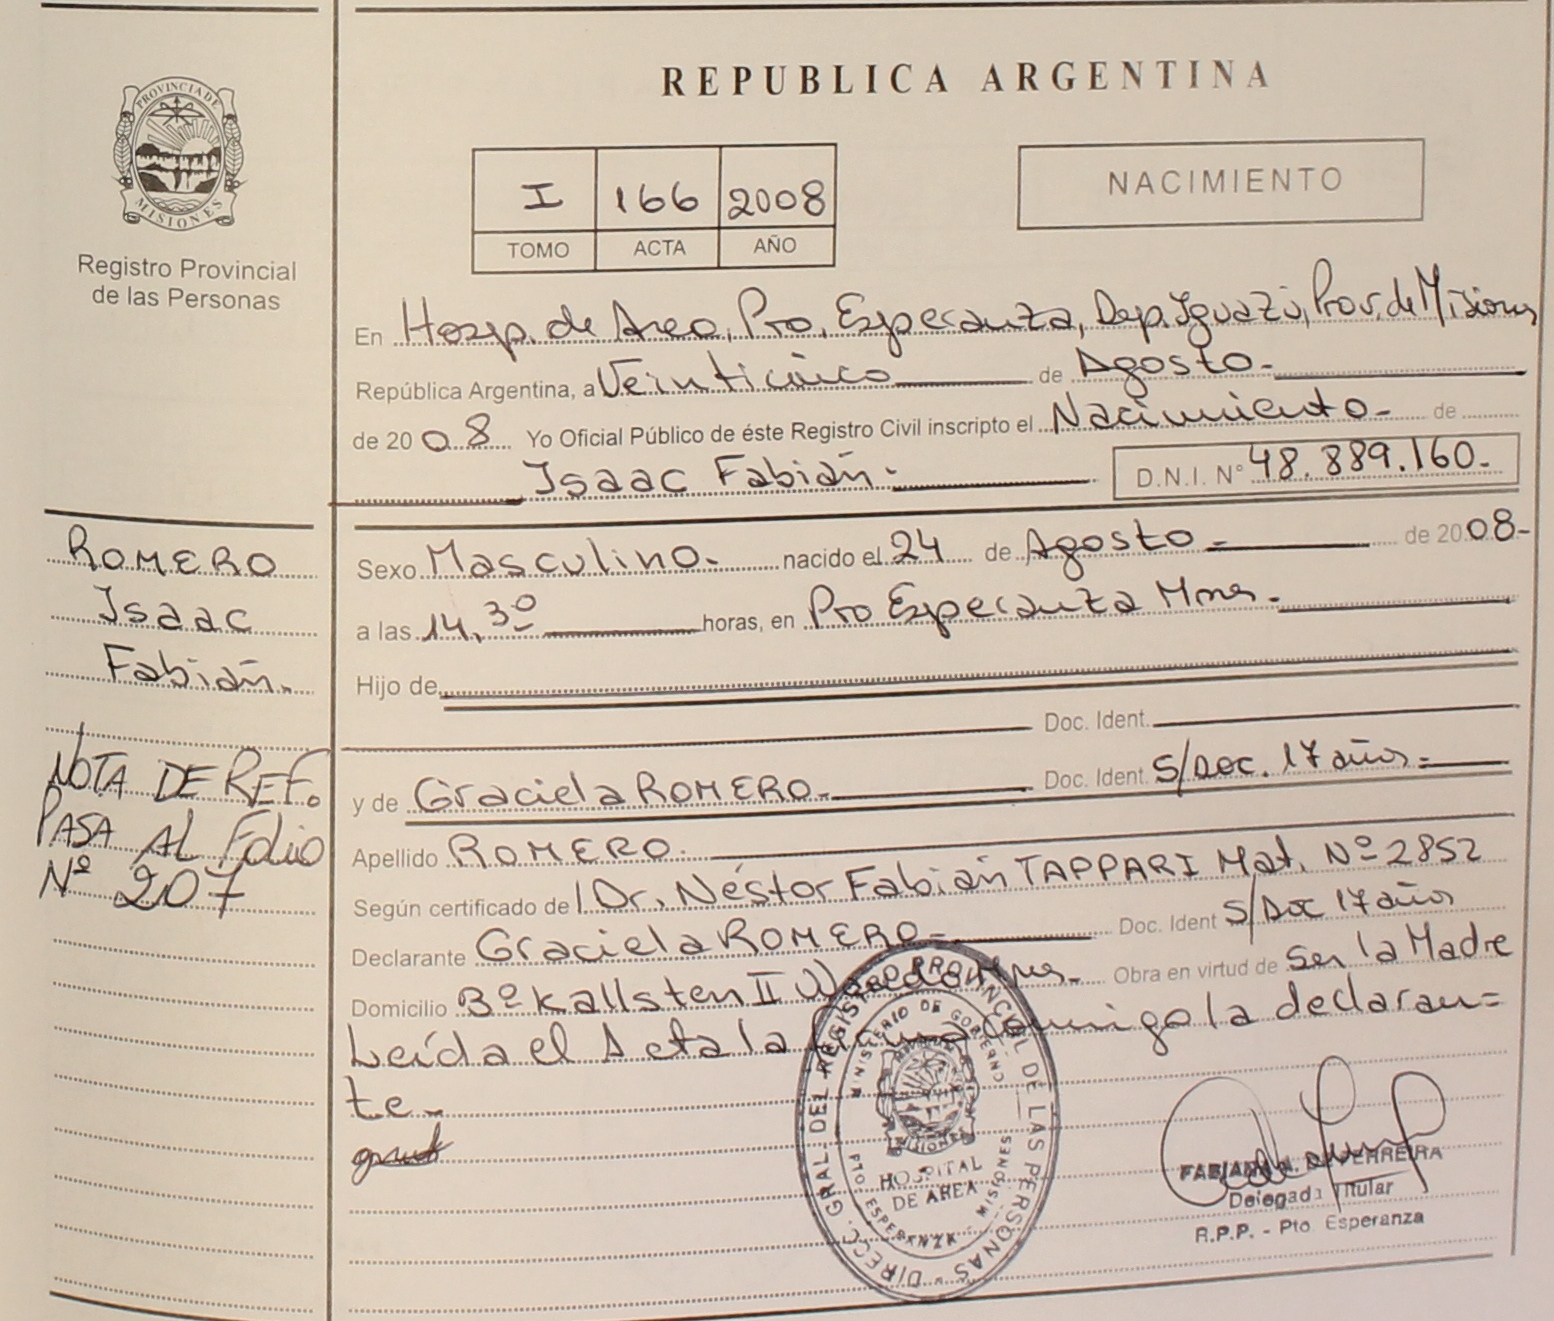 PROVINCIA DE
MISIONES
Registro Provincial
de las Personas
REPUBLICA ARGENTINA
I 166 2008
TOMO ACTA AÑO
NACIMIENTO
En Hosp. de Area, Pto, Esperanza, Dep. Iguazú, Prov. de Misiones
República Argentina, a Veinticinco de Agosto.-
de 2008 Yo Oficial Público de éste Registro Civil inscripto el Nacimiento- de
Isaac Fabián.- D.N.I. N° 48.889.160-
ROMERO
Isaac
Fabián.-
NOTA DE REF.
PASA AL Folio
Nº 207
Sexo Masculino- nacido el 24 de Agosto- de 2008-
a las 14,30 horas, en Pto Esperanza Mnes.-
Hijo de
Doc. Ident.
y de Graciela ROMERO- Doc. Ident. S/Doc. 17 años.-
Apellido ROMERO.
Según certificado de l Dr. Néstor Fabián TAPPARI Mat. Nº 2852
Declarante Graciela ROMERO- Doc. Ident S/Doc 17 años
Domicilio Bº Kallsten II Wanda Mnes- Obra en virtud de Ser la Madre
Leída el Acta la firma Conmigo la declaran=
te-
DIRECC. GRAL. DEL REGISTRO PROVINCIAL DE LAS PERSONAS
MINISTERIO DE GOBIERNO
MISIONES
HOSPITAL
DE AREA
PTO ESPERANZA - MISIONES
FERREIRA
Delegada Titular
R.P.P. - Pto Esperanza